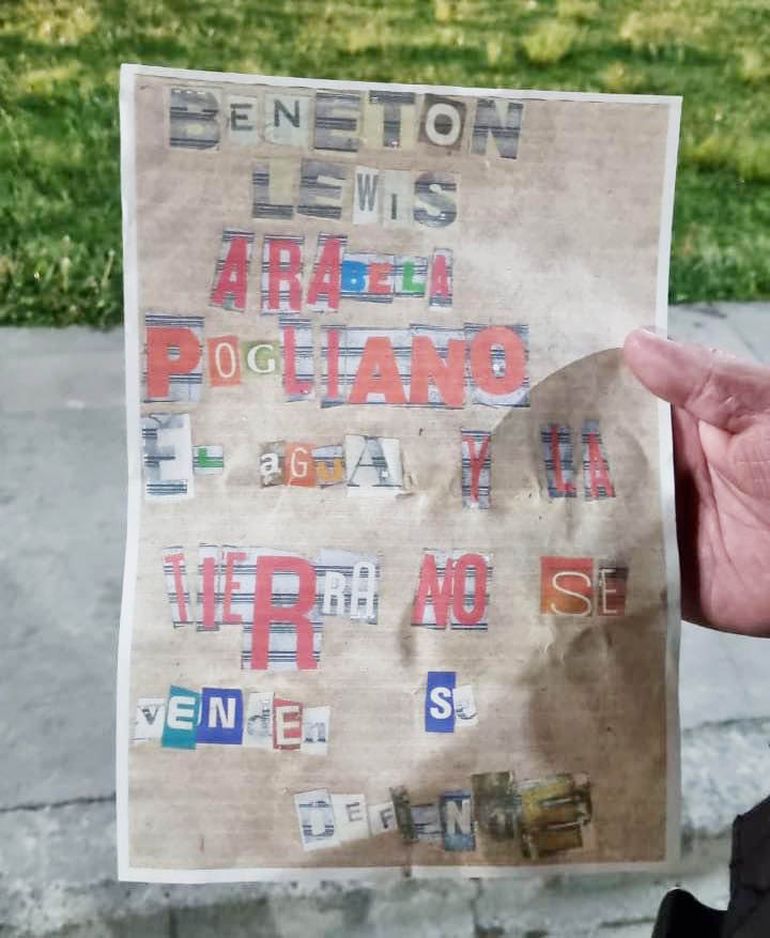 BENETON
LEWIS
ARABELA
POGLIANO
EL aGUA Y LA
TIERRA NO SE
VENdEn SE
DEFIENDE